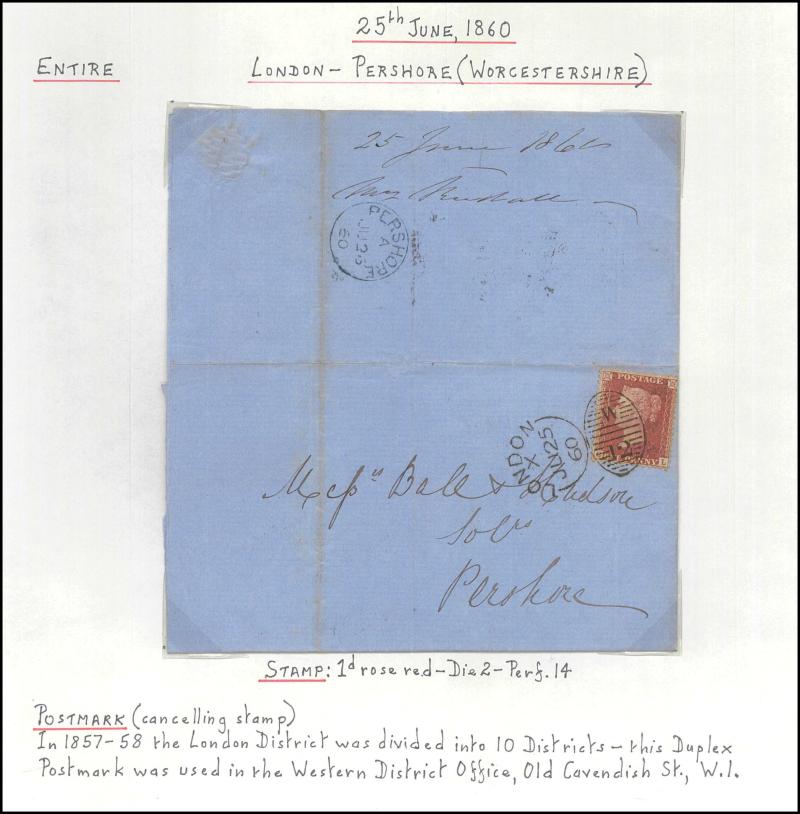 25th JUNE, 1860
ENTIRE
LONDON – PERSHORE (WORCESTERSHIRE)
25 June 1860
PERSHORE
A
JU 26
60
POSTAGE
W
12
PENNY
L
LONDON
X
JU 25
60
Messrs Ball &
Solrs
Pershore
STAMP: 1d rose red – Die 2 – Perf. 14
POSTMARK (cancelling stamp)
In 1857-58 the London District was divided into 10 Districts – this Duplex
Postmark was used in the Western District Office, Old Cavendish St., W.1.